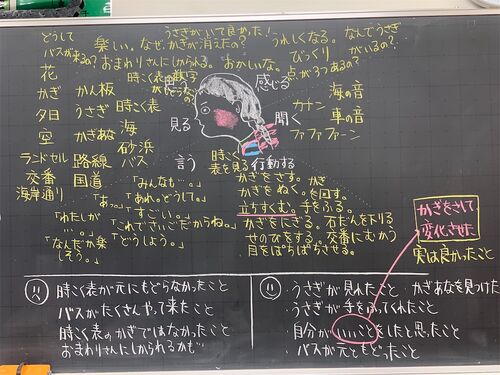 どうして
バスが来るの?
楽しい。なぜ、かぎが消えたの?
うさぎがいて良かった!
うれしくなる。なんでうさぎがいるの?
おまわりさんにしかられる。おかしいな。
びっくり
点が3つあるの?
時こく表の数字
思う
感じる
花
かぎ かん板
夕日 うさぎ 時こく表
空 かぎあな 海
砂浜
ランドセル 路線 バス
交番 国道
海岸通り
見る
聞く
海の音
カチン 車の音
ファファファーン
言う
「みんなも…。」
「あっ。」「あれ。どうして。」
「すごい。」
「わたしが…。」
「これでさいごだからね。」
「なんだか楽しそう。」
「どうしよう。」
時こく表を見る
行動する
かぎをさす。
かぎをぬく。かぎを回す。
立ちすくむ。手をふる。
かぎをにぎる。石だんを下りる
せのびをする。交番にむかう
目をぱちぱちさせる。
かぎをさして変化させた
実は良かったこと
時こく表が元にもどらなかったこと
バスがたくさんやって来たこと
時こく表のかぎではなかったこと
おまわりさんにしかられるかも…
・うさぎが見れたこと・かぎあなを見つけた
・うさぎが手をふってくれたこと
・自分がいいことをしたと思ったこと
・バスが元ともどったこと